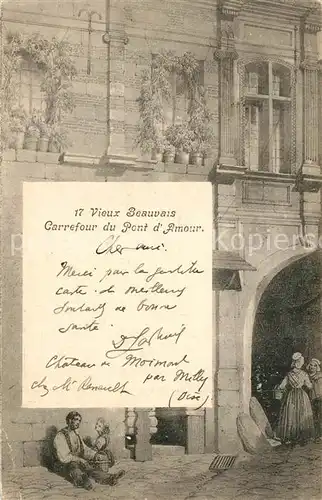 17 Vieux Beauvais
Carrefour du Pont d'Amour.
Cher ami.
Merci pour la gentille
carte et meilleurs
souhaits de bonne
santé.
Château de Mormont
par Milly
chez Mr Renault
(Oise)
akpool.co.uk